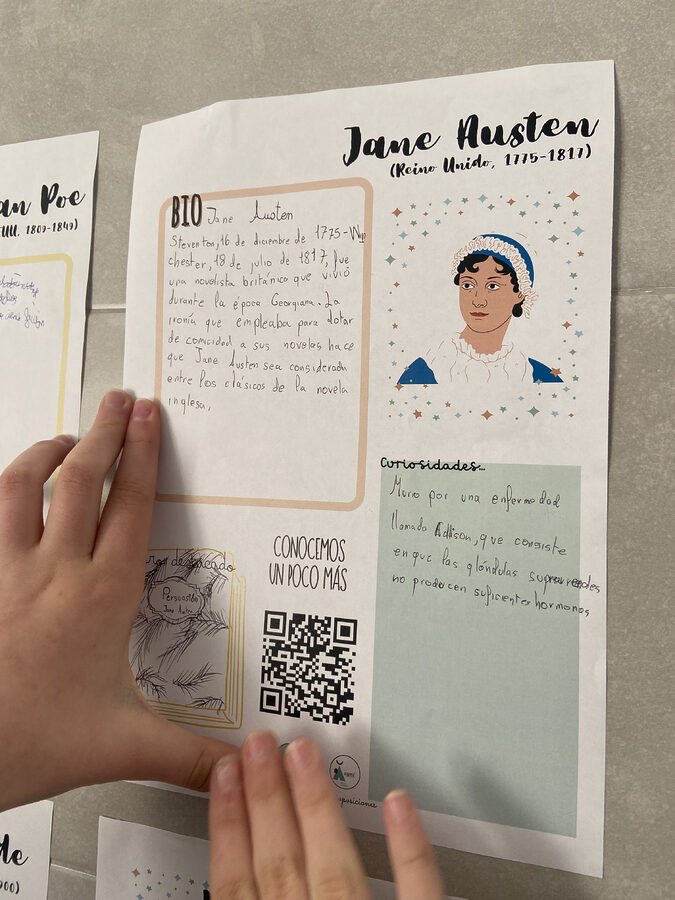 an Poe
EUU, 1809-1849)
Jane Austen
(Reino Unido, 1775-1817)
BIO Jane Austen
Steventon, 16 de diciembre de 1775-Win
chester, 18 de julio de 1817, fue
una novelista británica que vivió
durante la época Georgiana. La
ironía que empleaba para dotar
de comicidad a sus novelas hace
que Jane Austen sea considerada
entre los clásicos de la novela
inglesa.
Curiosidades...
Murio por una enfermedad
llamada Addison, que consiste
en que las glándulas suprarrenales
no producen suficientes hormonas
destacado
Persuasión
Jane Austen
CONOCEMOS
UN POCO MÁS
de
900)